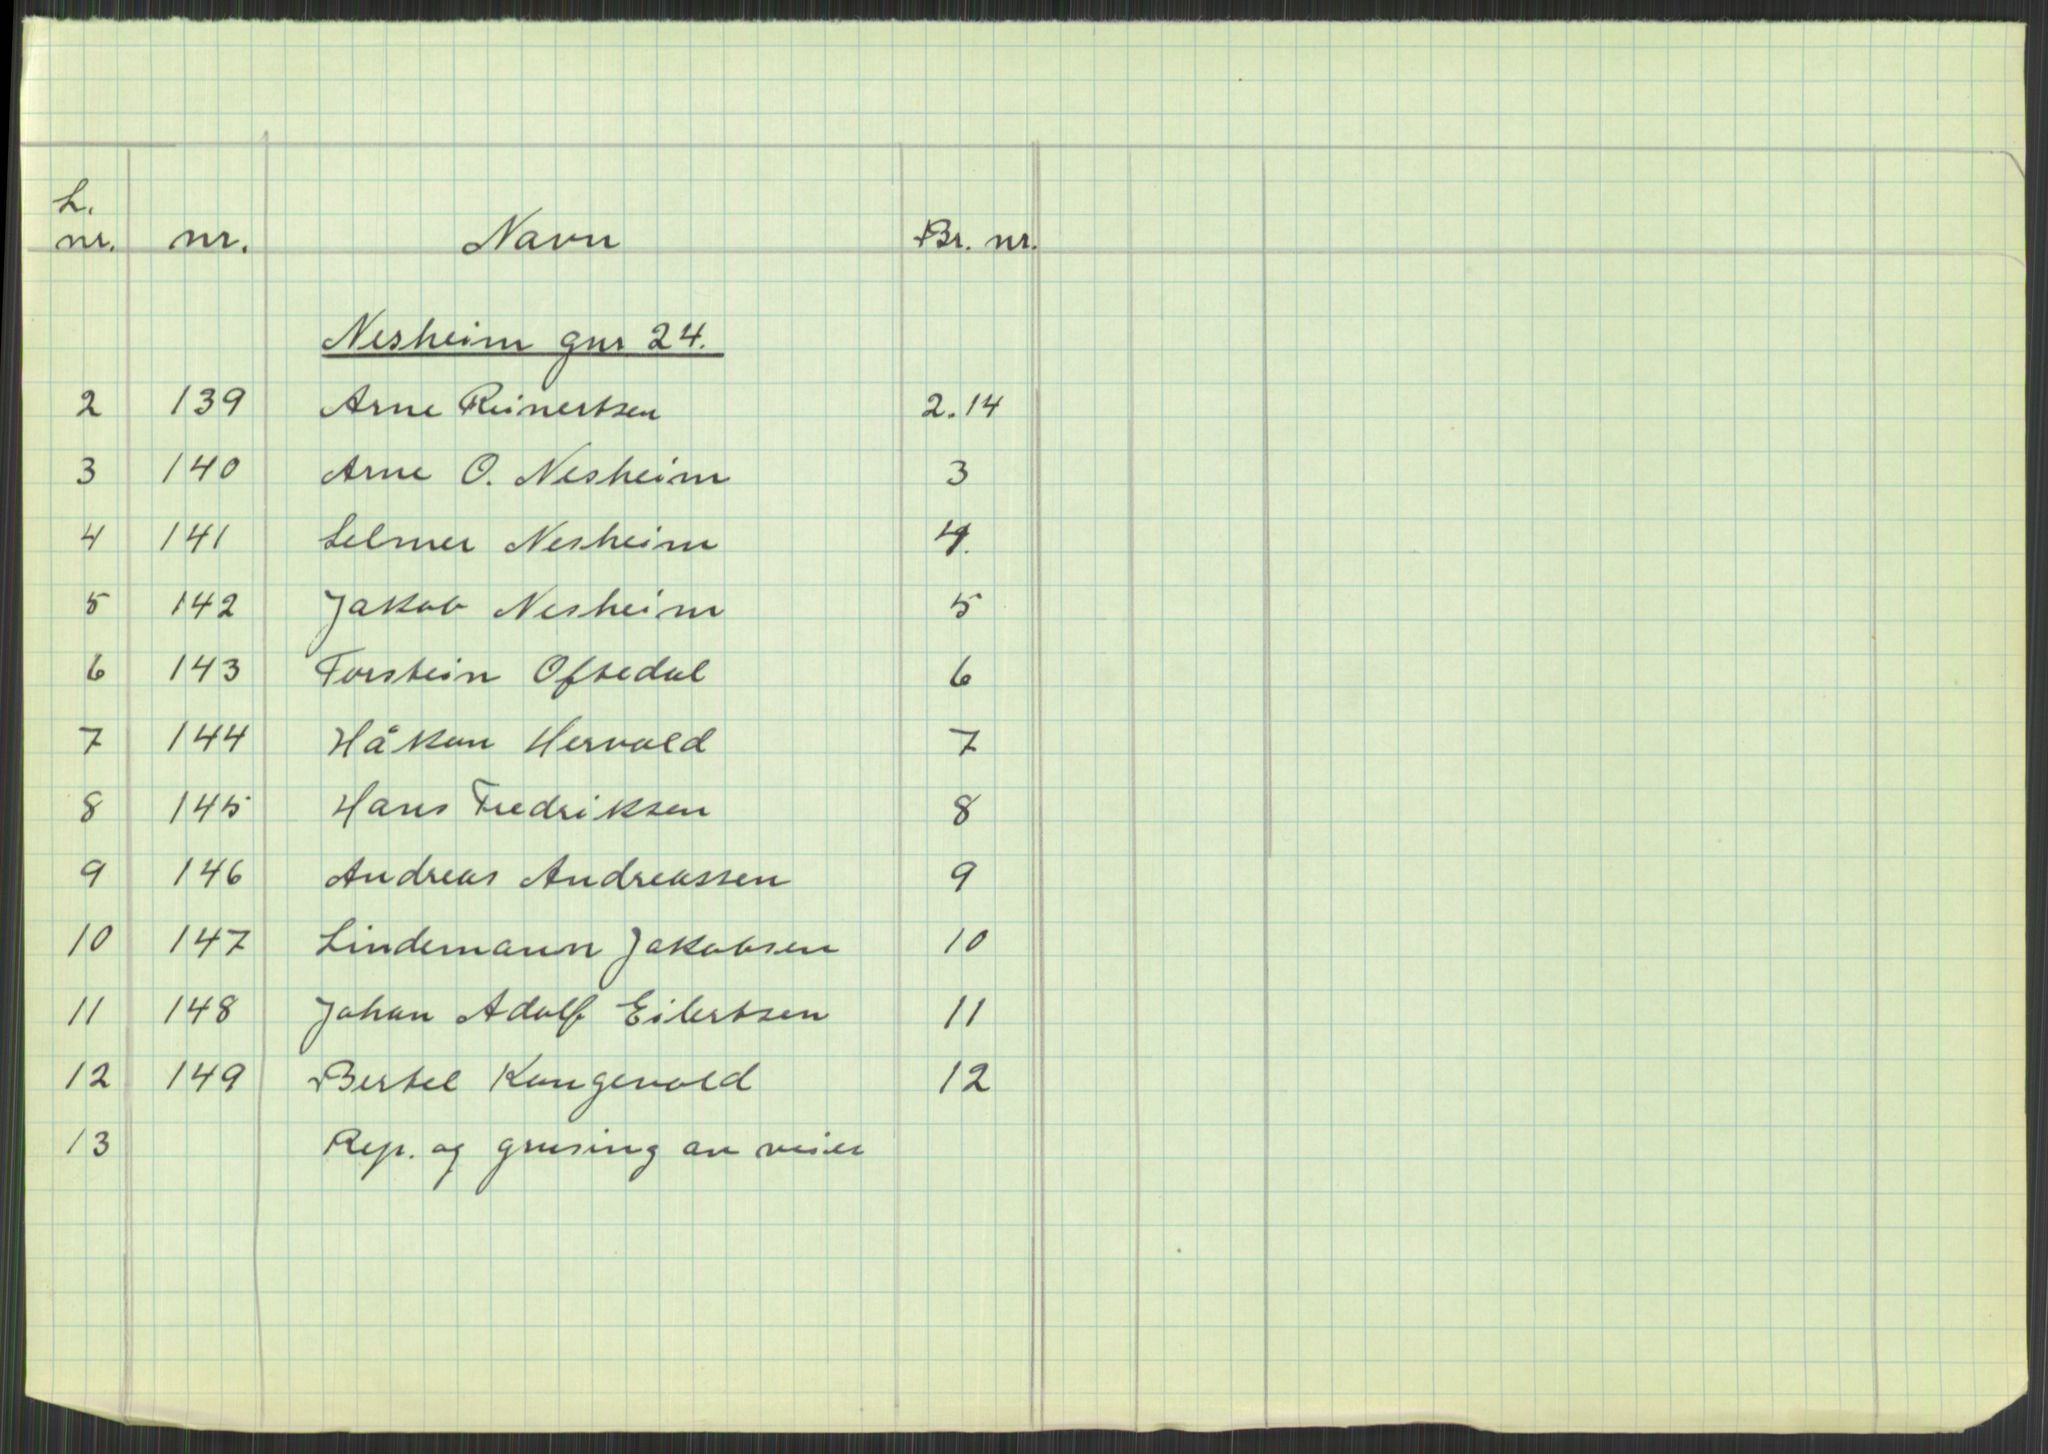 L.
nr. nr. Navn Br. nr.
Nesheim gnr 24.
2 139 Arne Reinertsen 2.14
3 140 Arne O. Nesheim 3
4 141 Selmer Nesheim 4.
5 142 Jakob Nesheim 5
6 143 Torstein Oftedal 6
7 144 Håkon Hervold 7
8 145 Hans Fredriksen 8
9 146 Andreas Andreassen 9
10 147 Lindemann Jakobsen 10
11 148 Johan Adolf Eilertsen 11
12 149 Bertel Kongevold 12
13 Rep. og grusing av veier